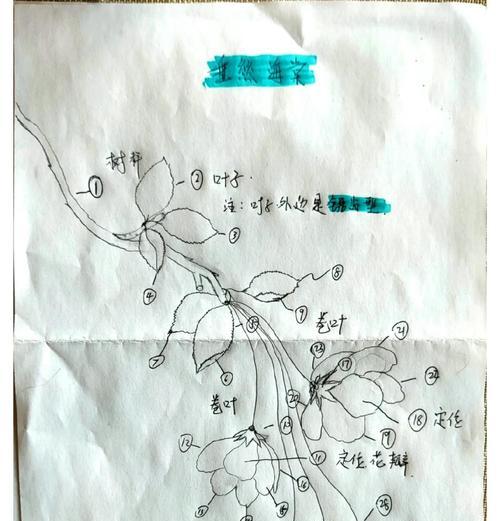 垂然海棠
树干
① ② 叶子.
注:叶子外边是锯齿型
③
④
⑧
⑨
卷叶
⑤
⑦
⑥
㉓ ⑰ ㉑
㉒
⑳
⑱ 定位
⑲
卷叶
⑫ ⑬
⑪ 定位花瓣
⑯
⑮